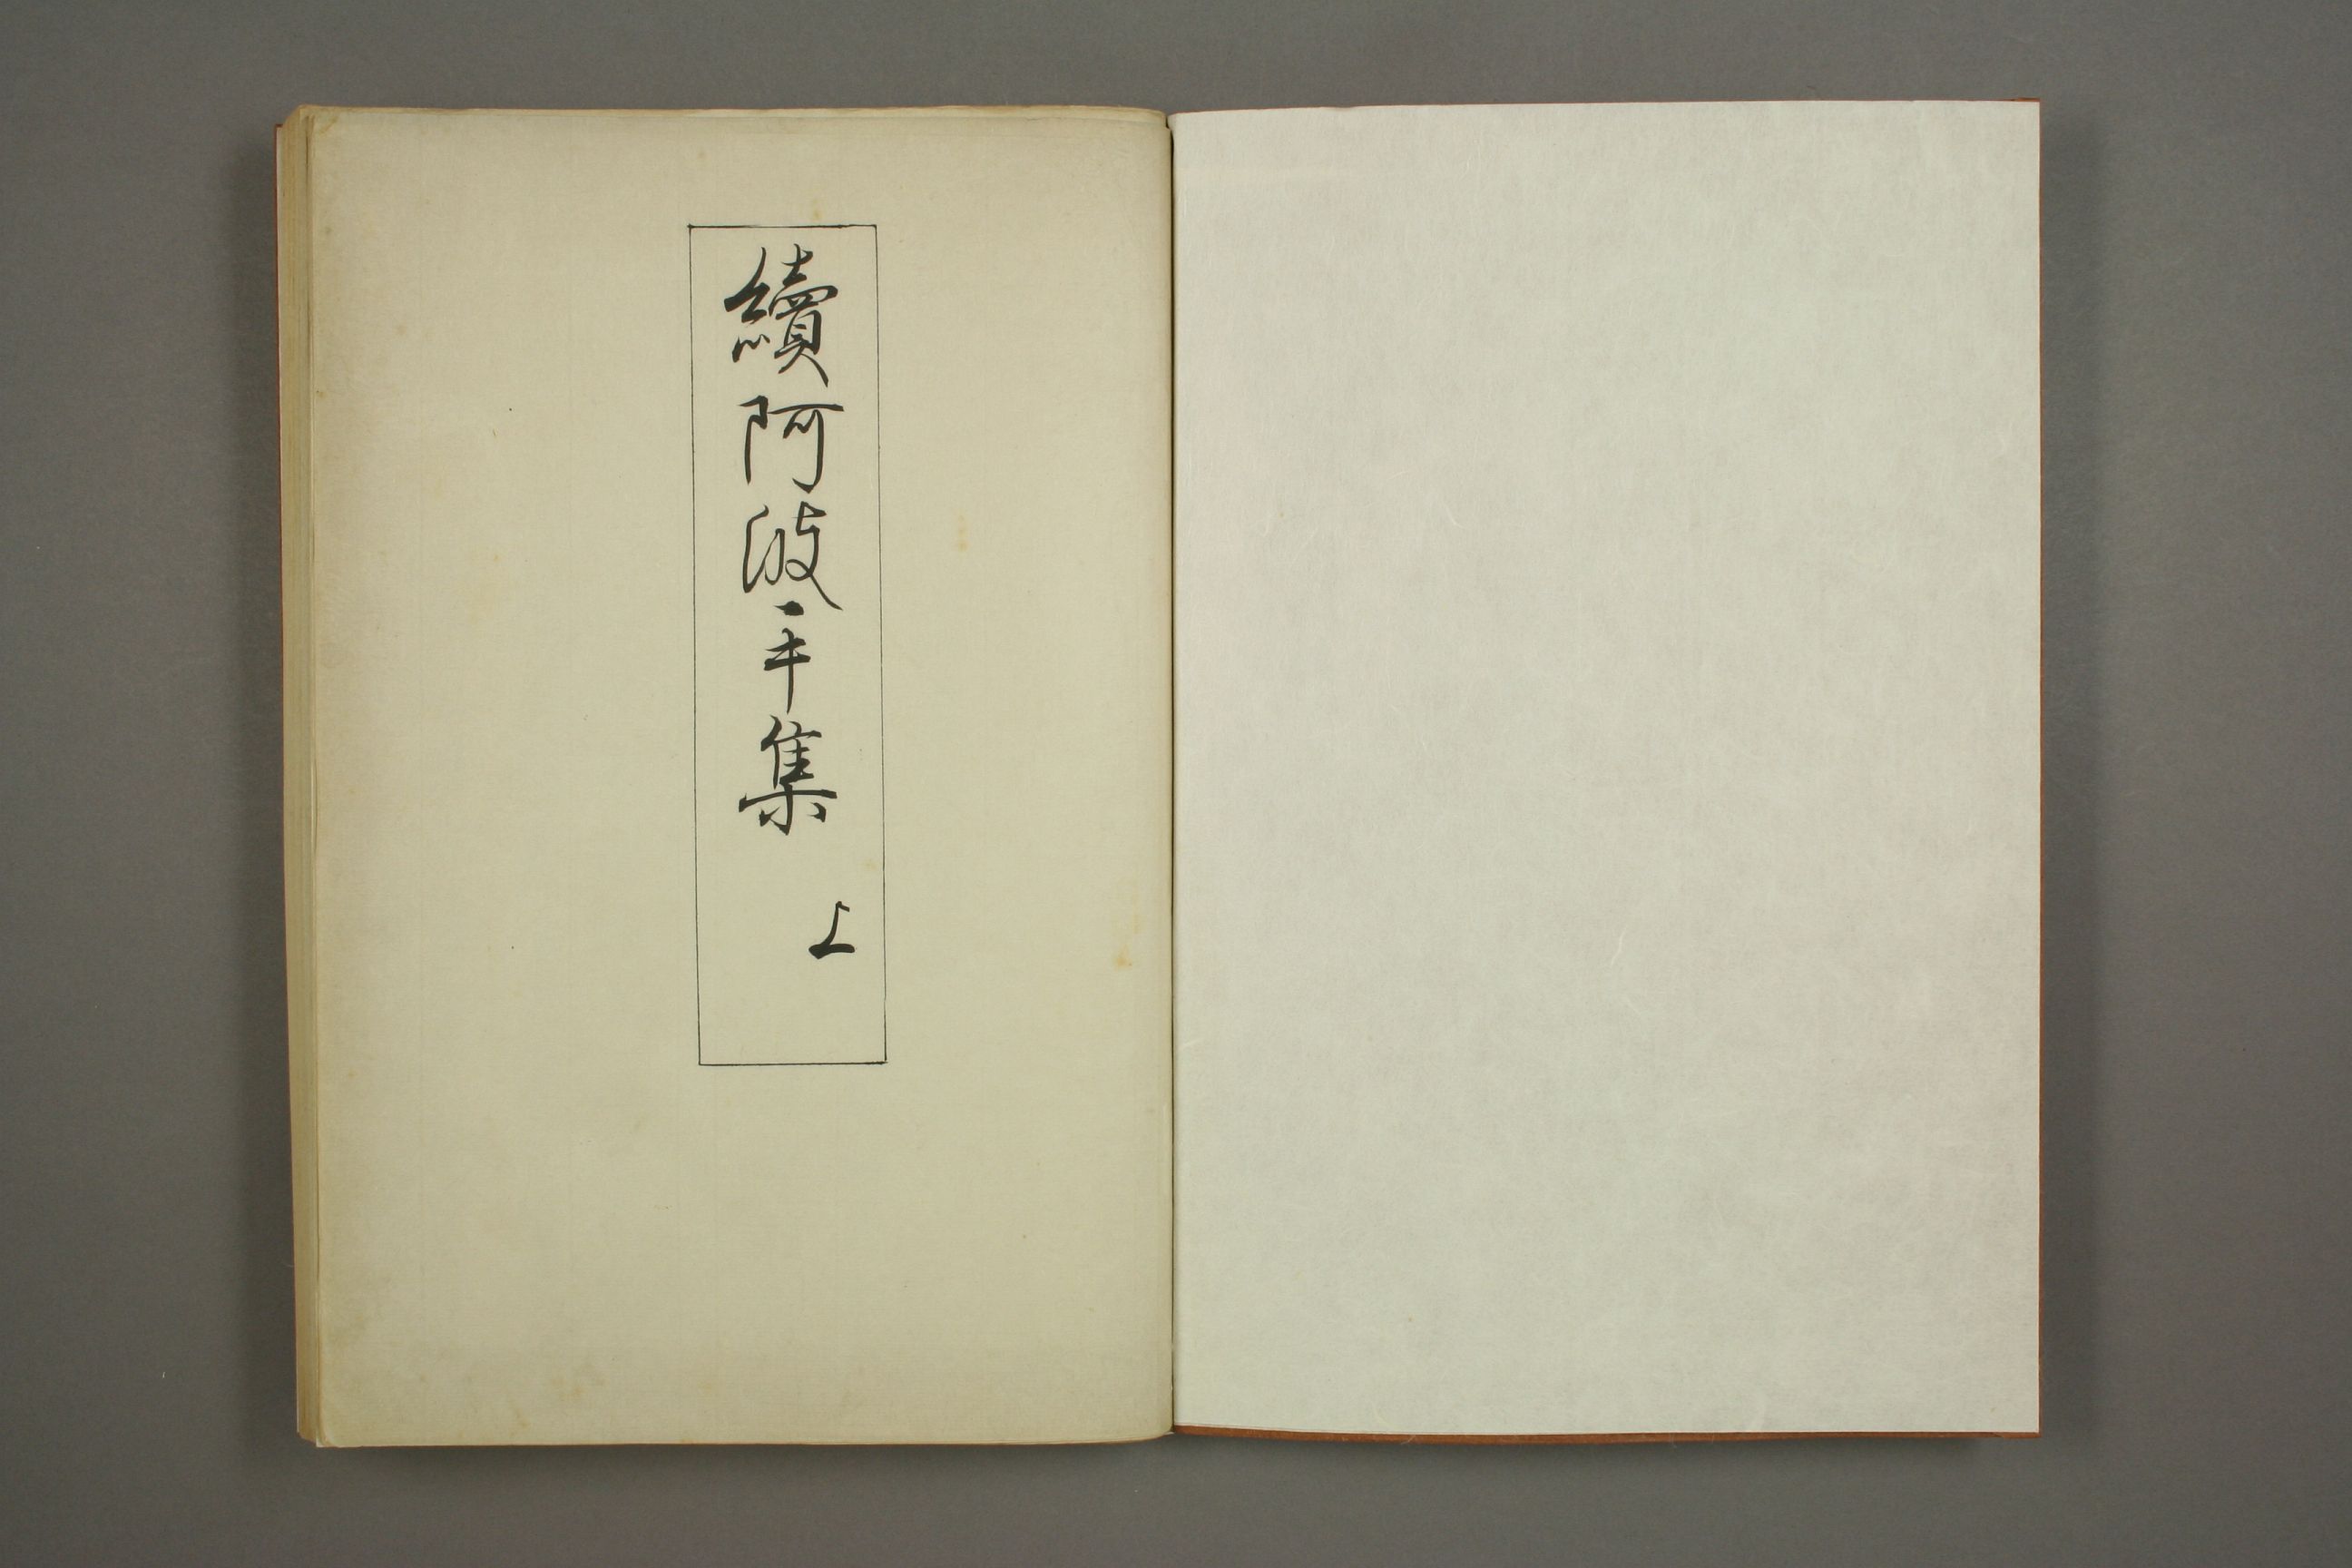 續阿波手集
上